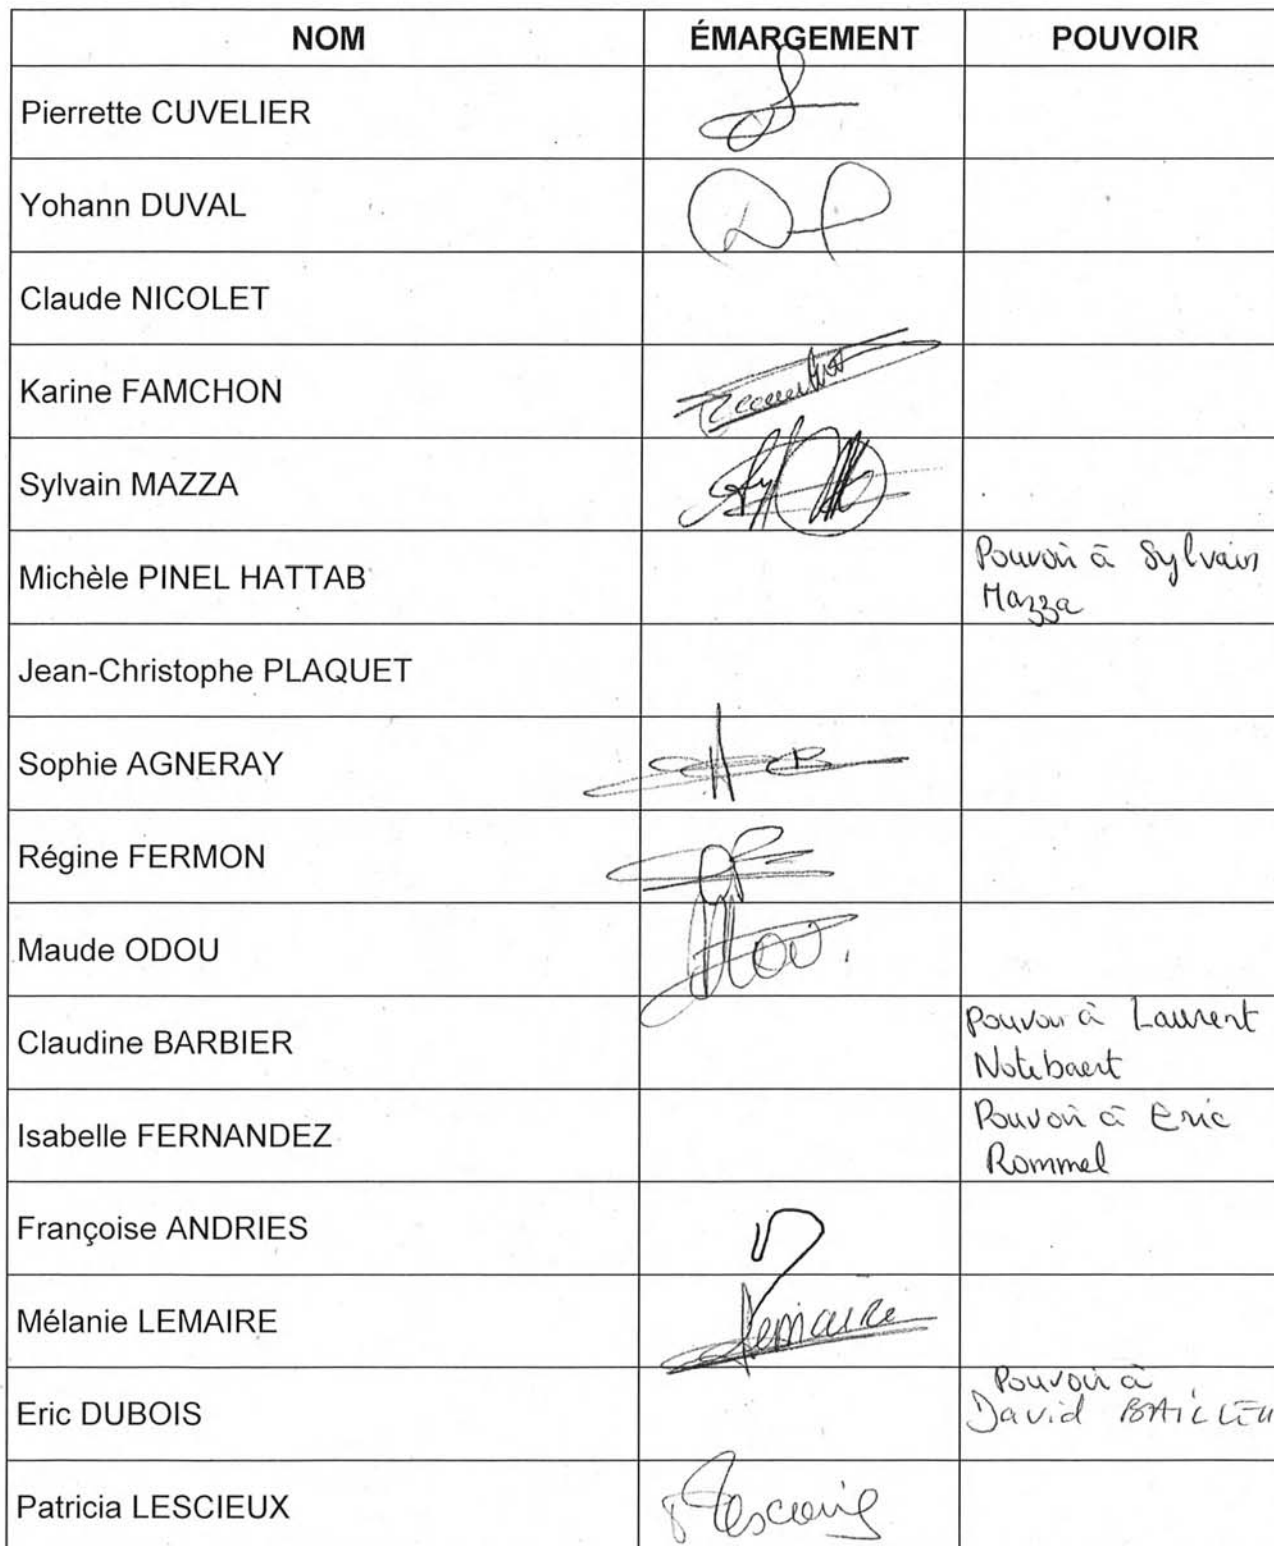 NOM ÉMARGEMENT POUVOIR
Pierrette CUVELIER
Yohann DUVAL
Claude NICOLET
Karine FAMCHON
Sylvain MAZZA
Michèle PINEL HATTAB Pouvoir à Sylvain
Mazza
Jean-Christophe PLAQUET
Sophie AGNERAY
Régine FERMON
Maude ODOU
Claudine BARBIER Pouvoir à Laurent
Notebaert
Isabelle FERNANDEZ Pouvoir à Eric
Rommel
Françoise ANDRIES
Mélanie LEMAIRE Lemaire
Eric DUBOIS Pouvoir à
David BAILLEU
Patricia LESCIEUX